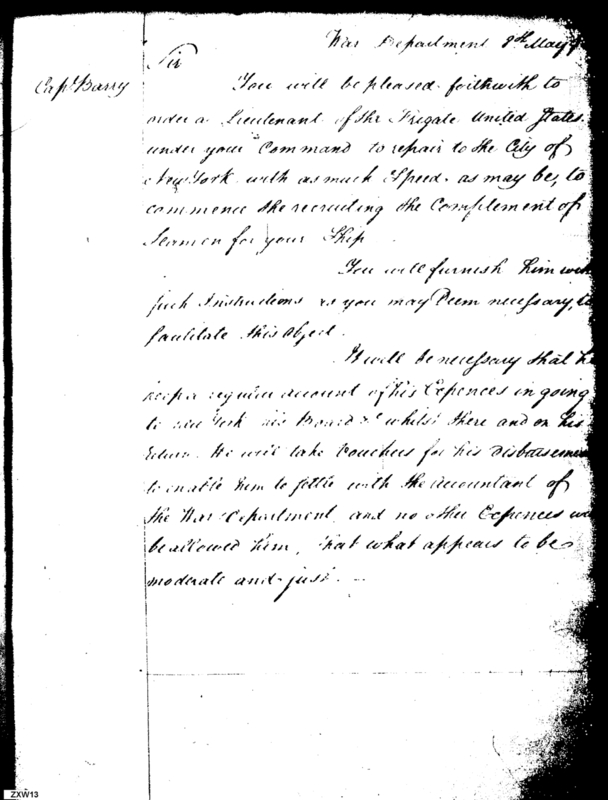 War Department 8th May
Sir
Capt Barry
You will be pleased forthwith to
order a Lieutenant of the Frigate United States
under your Command to repair to the City of
New York with as much Speed as may be, to
commence the recruiting the Complement of
Seamen for your Ship
You will furnish him with
such Instructions as you may Deem necessary, to
facilitate this object.
It will be necessary that he
keep a regular account of his Expences in going
to New York his Board &c whilst there and on his
return. He will take Vouchers for his disbursemen
to enable him to settle with the Accountant of
the War Department, and no other Expences wi
be allowed him, that what appears to be
moderate and just.
ZXW13